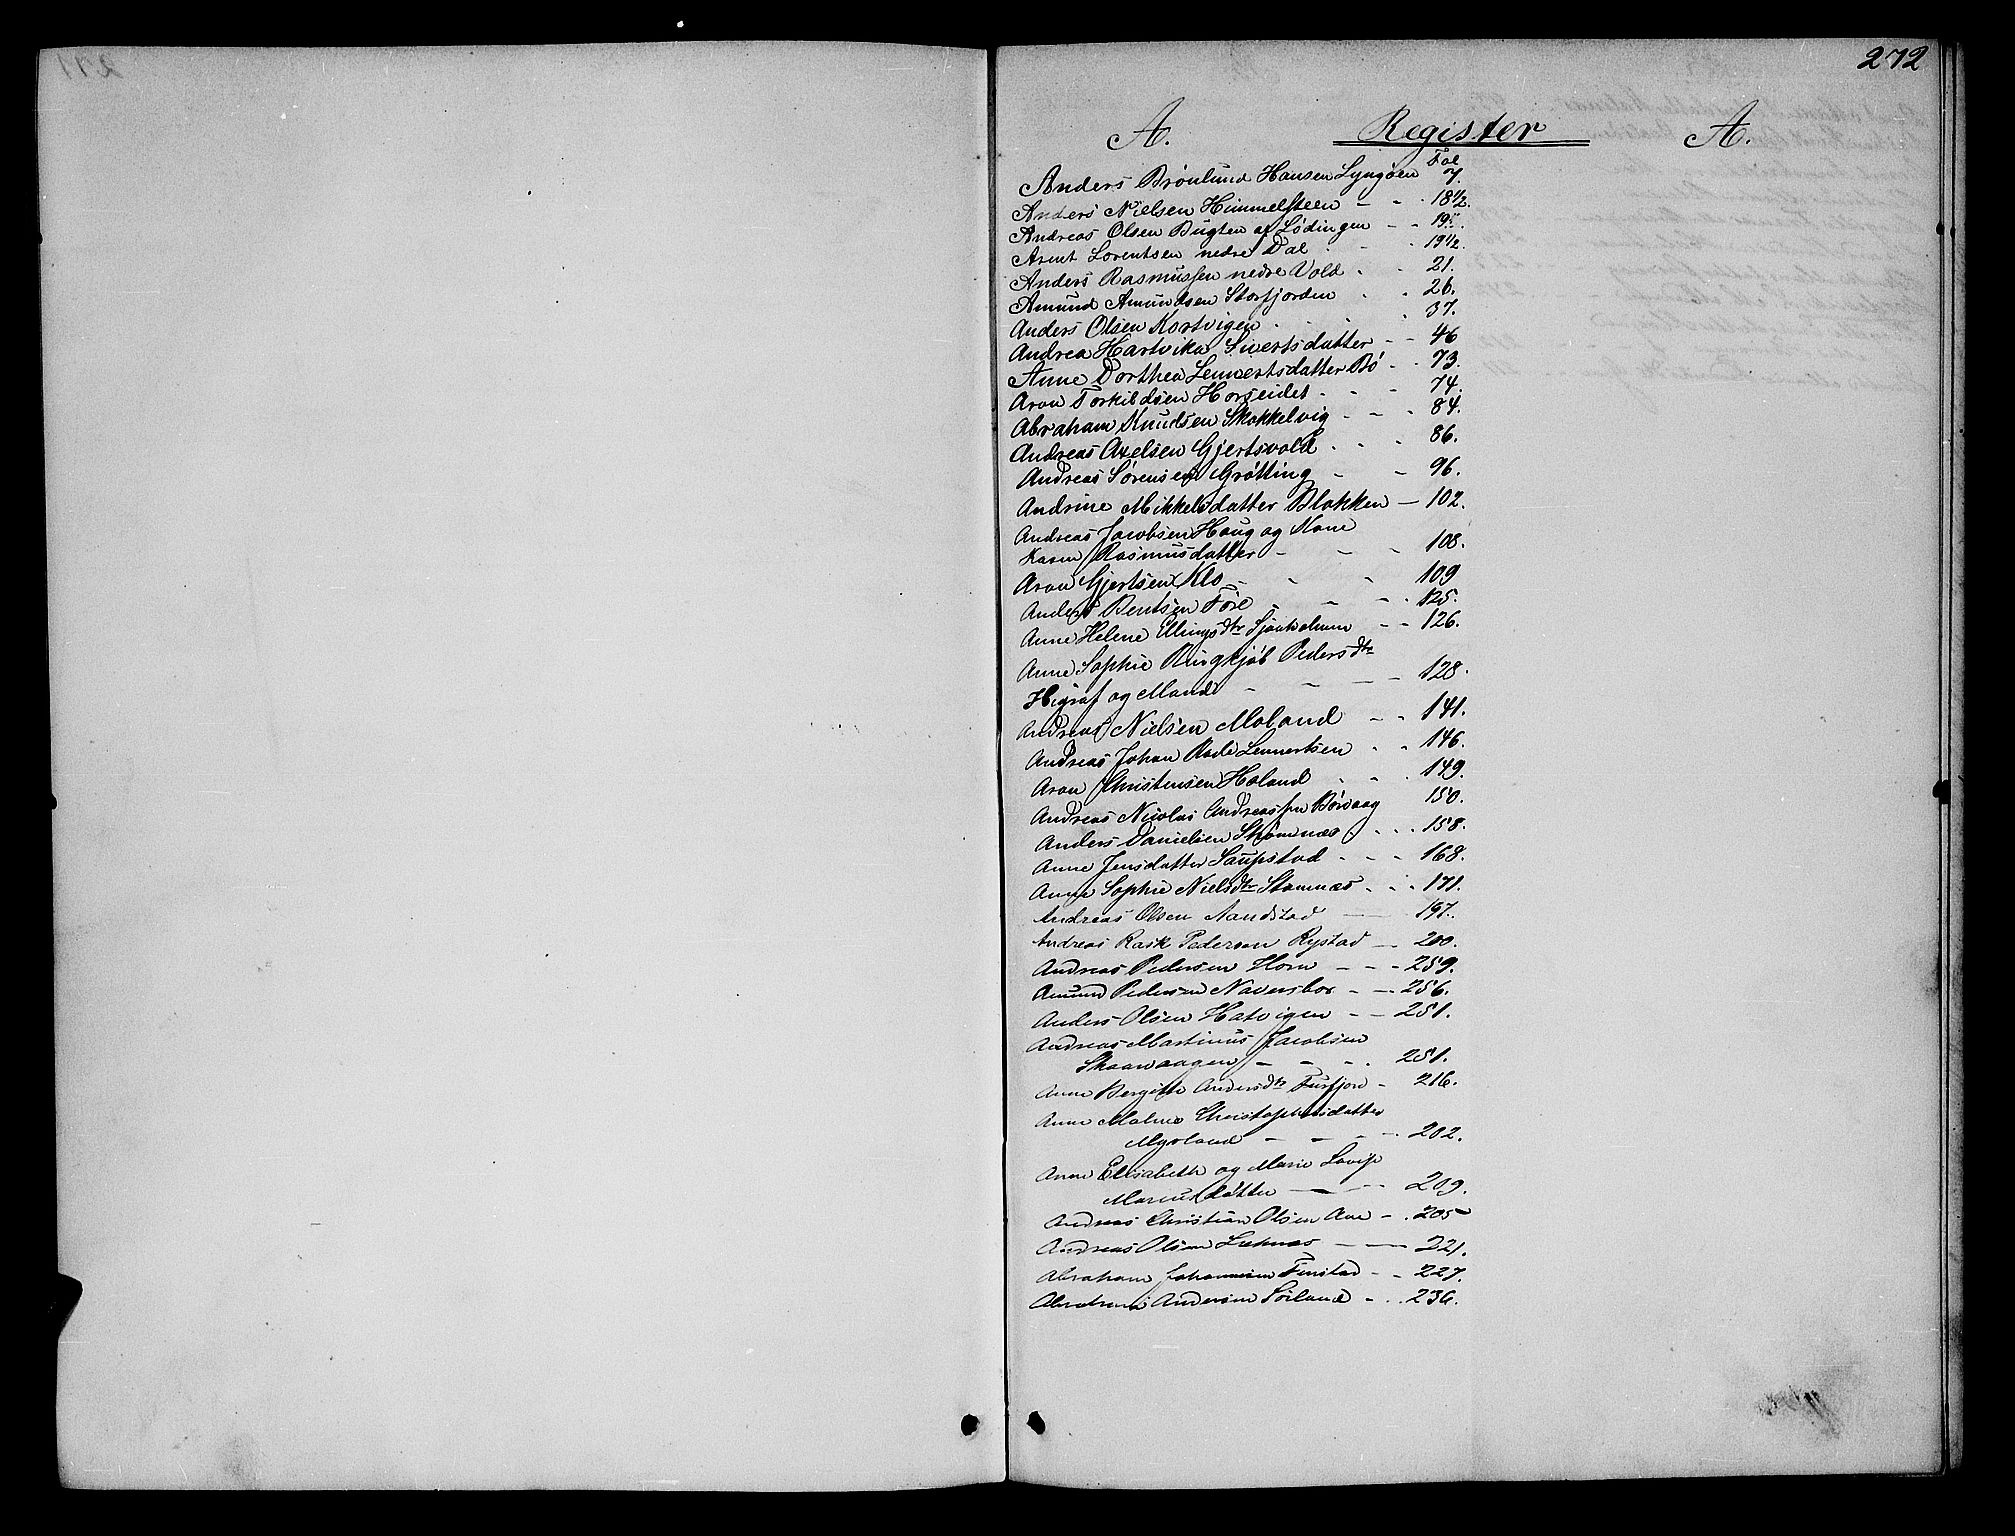 272
A. Register A.
Fol
Anders Brönlund Hansen Lyngöen 7.
Anders Nielsen Himmelsteen - - 18 1/2.
Andreas Olsen Bugten af Lödingen - - 19.
Arent Lorentsen nedre Dal - 19 1/2.
Anders Rasmussen nedre Vold - - 21.
Amund Amundsen Storfjorden - - 26.
Anders Olsen Kortvigen - - - 37.
Andrea Hartvika Sivertsdatter - - 46
Anne Dorthea Lennertsdatter Bö - - 73.
Aron Torkildsen Horseidet - - - 74.
Abraham Knudsen Skokkelvig - - - 84.
Andreas Axelsen Gjertsvold - - - 86.
Andreas Sörensen Grötting - - 96.
Andrine Mikkelsdatter Blokken - 102.
Andreas Jacobsen Haug og Kone
Karen Rasmusdatter - - - 108.
Aron Gjertsen Klo - - - 109
Anders Bentsen Före - - - 125.
Anne Helene Ellingsdtr Sjonholmen - - 126.
Anne Sophie Ringkjöb Pedersdtr
Higraf og Mand - - - 128.
Andreas Nielsen Moland - - 141.
Andreas Johan Lennertsen - - 146.
Aron Christensen Holand - - 149.
Andreas Nicolai Andreassen Börvaag 150.
Anders Danielsen Skomnæs - - - 158.
Anne Jensdatter Saupstad - - - 168.
Anne Sophie Nielsdtr Stamnæs - - - 171.
Andreas Olsen Nandstad - 197.
Andreas Rask Pedersen Rystad - 200.
Andreas Pedersen Horn - - - 259.
Amund Pedersen - - 256.
Anders Olsen Hatvigen - - 251.
Andreas Martinus Jacobsen
Skaanvaagen - - - 251.
Anne Bergitte Andersdtr Fusfjord - 216.
Anne Malene Christophersdatter
Myrland - - - - 202.
Anne Elisabeth og Marie Lovise
Marcusdatter - - - 209.
Andreas Christian Olsen Aae - - 205
Andreas Olsen Leknæs - - 221.
Abraham Johannesen Finstad - - 227.
Abraham Andersen Sörland - - 236.